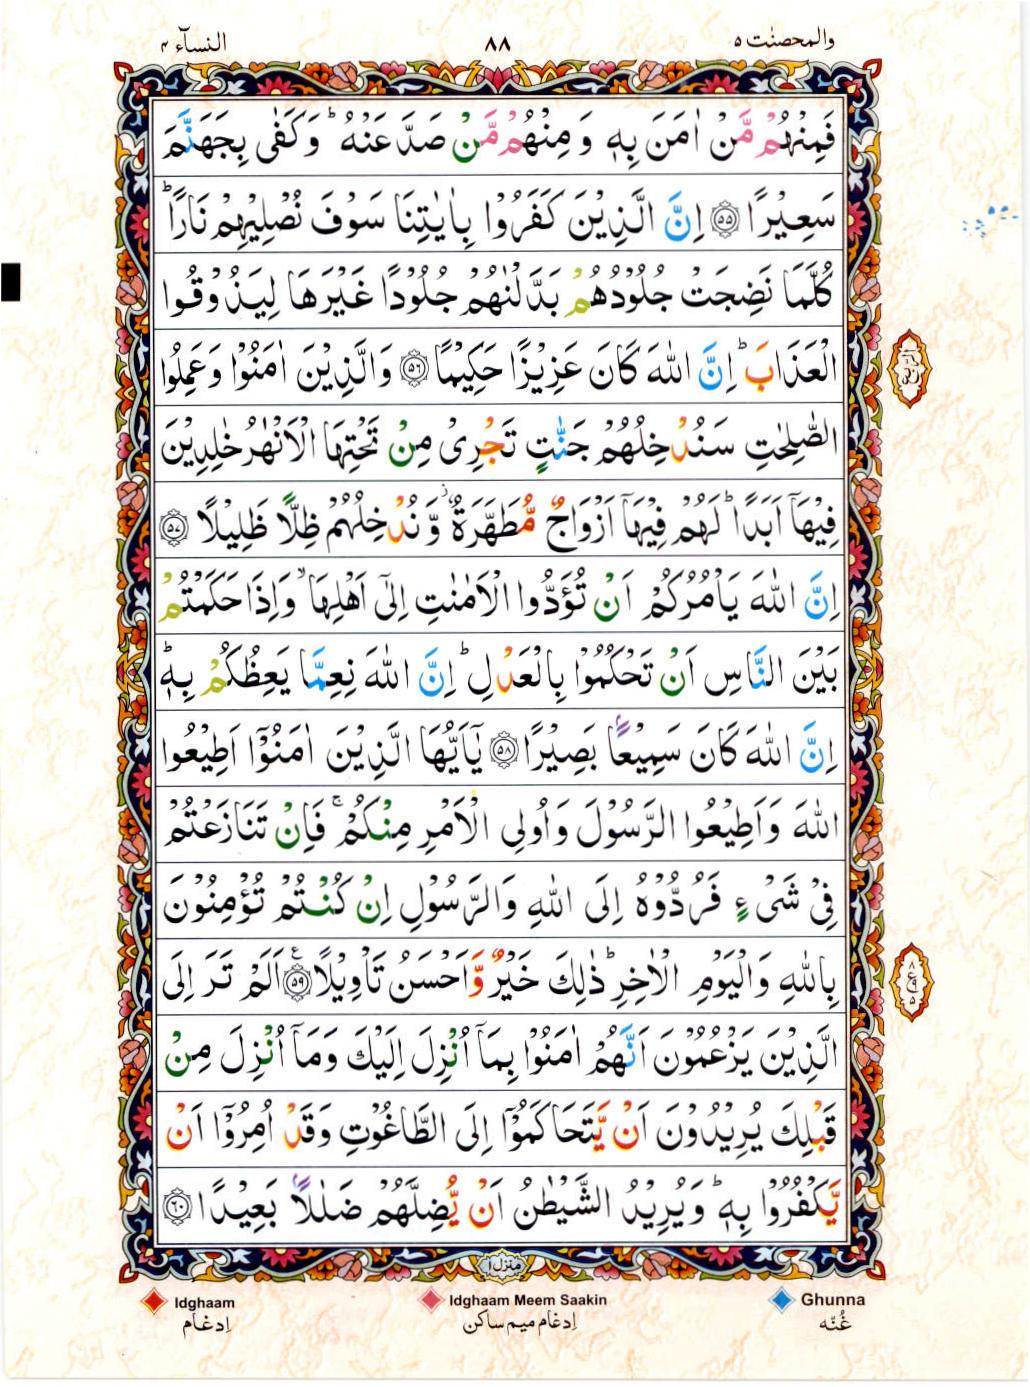 النسآء ۴
٨٨
والمحصنٰت ۵
فَمِنْهُمْ مَّنْ اٰمَنَ بِهٖ وَمِنْهُمْ مَّنْ صَدَّ عَنْهُ ؕ وَكَفٰى بِجَهَنَّمَ
سَعِيْرًا ﴿۵۵﴾ اِنَّ الَّذِيْنَ كَفَرُوْا بِاٰيٰتِنَا سَوْفَ نُصْلِيْهِمْ نَارًا ؕ
كُلَّمَا نَضِجَتْ جُلُوْدُهُمْ بَدَّلْنٰهُمْ جُلُوْدًا غَيْرَهَا لِيَذُوْقُوا
الْعَذَابَ ؕ اِنَّ اللّٰهَ كَانَ عَزِيْزًا حَكِيْمًا ﴿۵۶﴾ وَالَّذِيْنَ اٰمَنُوْا وَعَمِلُوا
الصّٰلِحٰتِ سَنُدْخِلُهُمْ جَنّٰتٍ تَجْرِىْ مِنْ تَحْتِهَا الْاَنْهٰرُ خٰلِدِيْنَ
فِيْهَاۤ اَبَدًا ؕ لَهُمْ فِيْهَاۤ اَزْوَاجٌ مُّطَهَّرَةٌ ؗ وَّنُدْخِلُهُمْ ظِلًّا ظَلِيْلًا ﴿۵۷﴾
اِنَّ اللّٰهَ يَاْمُرُكُمْ اَنْ تُؤَدُّوا الْاَمٰنٰتِ اِلٰٓى اَهْلِهَا ۙ وَاِذَا حَكَمْتُمْ
بَيْنَ النَّاسِ اَنْ تَحْكُمُوْا بِالْعَدْلِ ؕ اِنَّ اللّٰهَ نِعِمَّا يَعِظُكُمْ بِهٖ ؕ
اِنَّ اللّٰهَ كَانَ سَمِيْعًۢا بَصِيْرًا ﴿۵۸﴾ يٰۤاَيُّهَا الَّذِيْنَ اٰمَنُوْۤا اَطِيْعُوا
اللّٰهَ وَاَطِيْعُوا الرَّسُوْلَ وَاُولِى الْاَمْرِ مِنْكُمْ ۚ فَاِنْ تَنَازَعْتُمْ
فِىْ شَىْءٍ فَرُدُّوْهُ اِلَى اللّٰهِ وَالرَّسُوْلِ اِنْ كُنْتُمْ تُؤْمِنُوْنَ
بِاللّٰهِ وَالْيَوْمِ الْاٰخِرِ ؕ ذٰلِكَ خَيْرٌ وَّاَحْسَنُ تَاْوِيْلًا ﴿۵۹﴾ع اَلَمْ تَرَ اِلَى
الَّذِيْنَ يَزْعُمُوْنَ اَنَّهُمْ اٰمَنُوْا بِمَاۤ اُنْزِلَ اِلَيْكَ وَمَاۤ اُنْزِلَ مِنْ
قَبْلِكَ يُرِيْدُوْنَ اَنْ يَّتَحَاكَمُوْۤا اِلَى الطَّاغُوْتِ وَقَدْ اُمِرُوْۤا اَنْ
يَّكْفُرُوْا بِهٖ ؕ وَيُرِيْدُ الشَّيْطٰنُ اَنْ يُّضِلَّهُمْ ضَلٰلًۢا بَعِيْدًا ﴿۶۰﴾
منزل ۱
Idghaam
اِدغام
Idghaam Meem Saakin
اِدغام میم ساکن
Ghunna
غُنّه